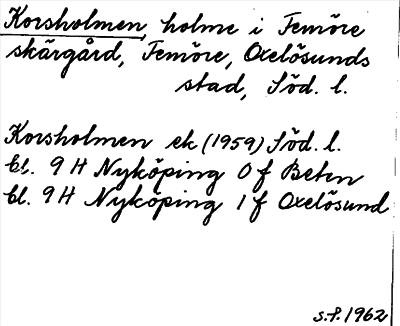 Korsholmen, holme i Femöre
skärgård, Femöre, Oxelösunds
stad, Söd. l.
Korsholmen ek (1959) Söd. l.
bl. 9 H Nyköping 0 f Beten
bl. 9 H Nyköping 1 f Oxelösund
s.f. 1962